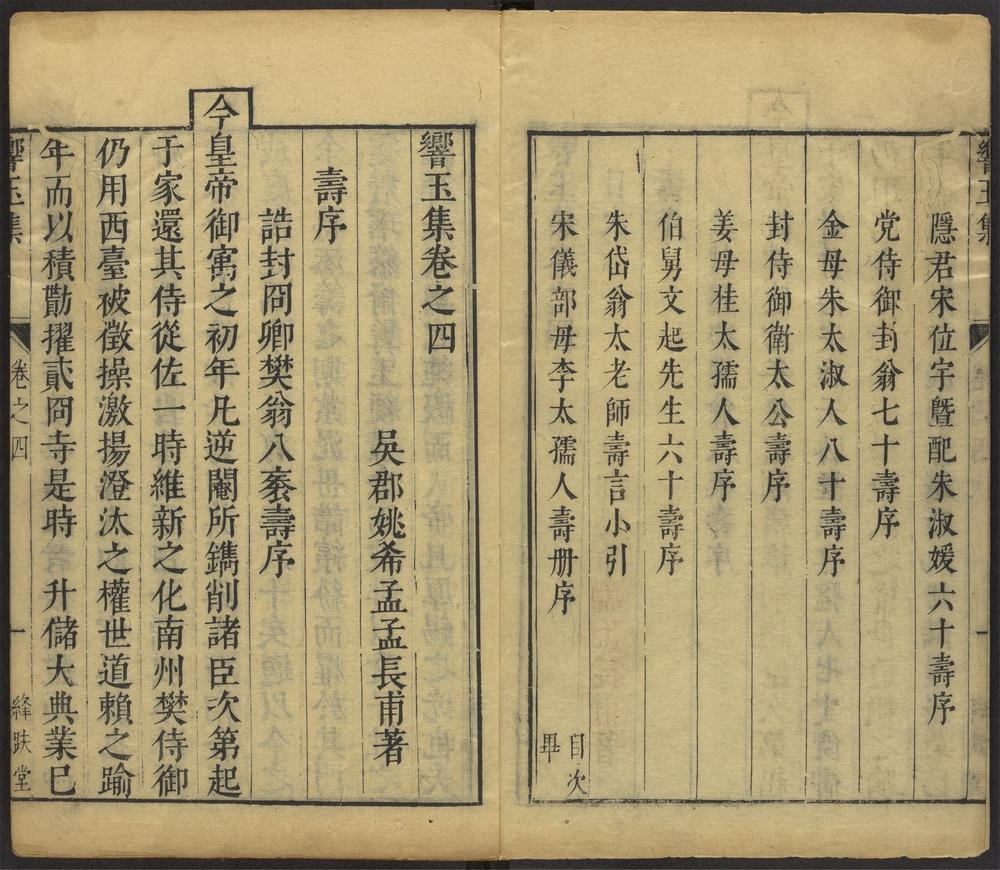 響玉集
隱君宋位宇曁配朱淑媛六十壽序
党侍御封翁七十壽序
金母朱太淑人八十壽序
封侍御衛太公壽序
姜母桂太孺人壽序
伯舅文起先生六十壽序
朱岱翁太老師壽言小引
宋儀部母李太孺人壽册序
目次
畢
響玉集卷之四
吳郡姚希孟孟長甫著
壽序
誥封冏卿樊翁八袠壽序
今皇帝御寓之初年凡逆閹所鐫削諸臣次第起
于家還其侍從佐一時維新之化南州樊侍御
仍用西臺被徵操激揚澄汰之權世道賴之踰
年而以積勩擢貳冏寺是時 升儲大典業已
響玉集 卷之四 一 絳趺堂